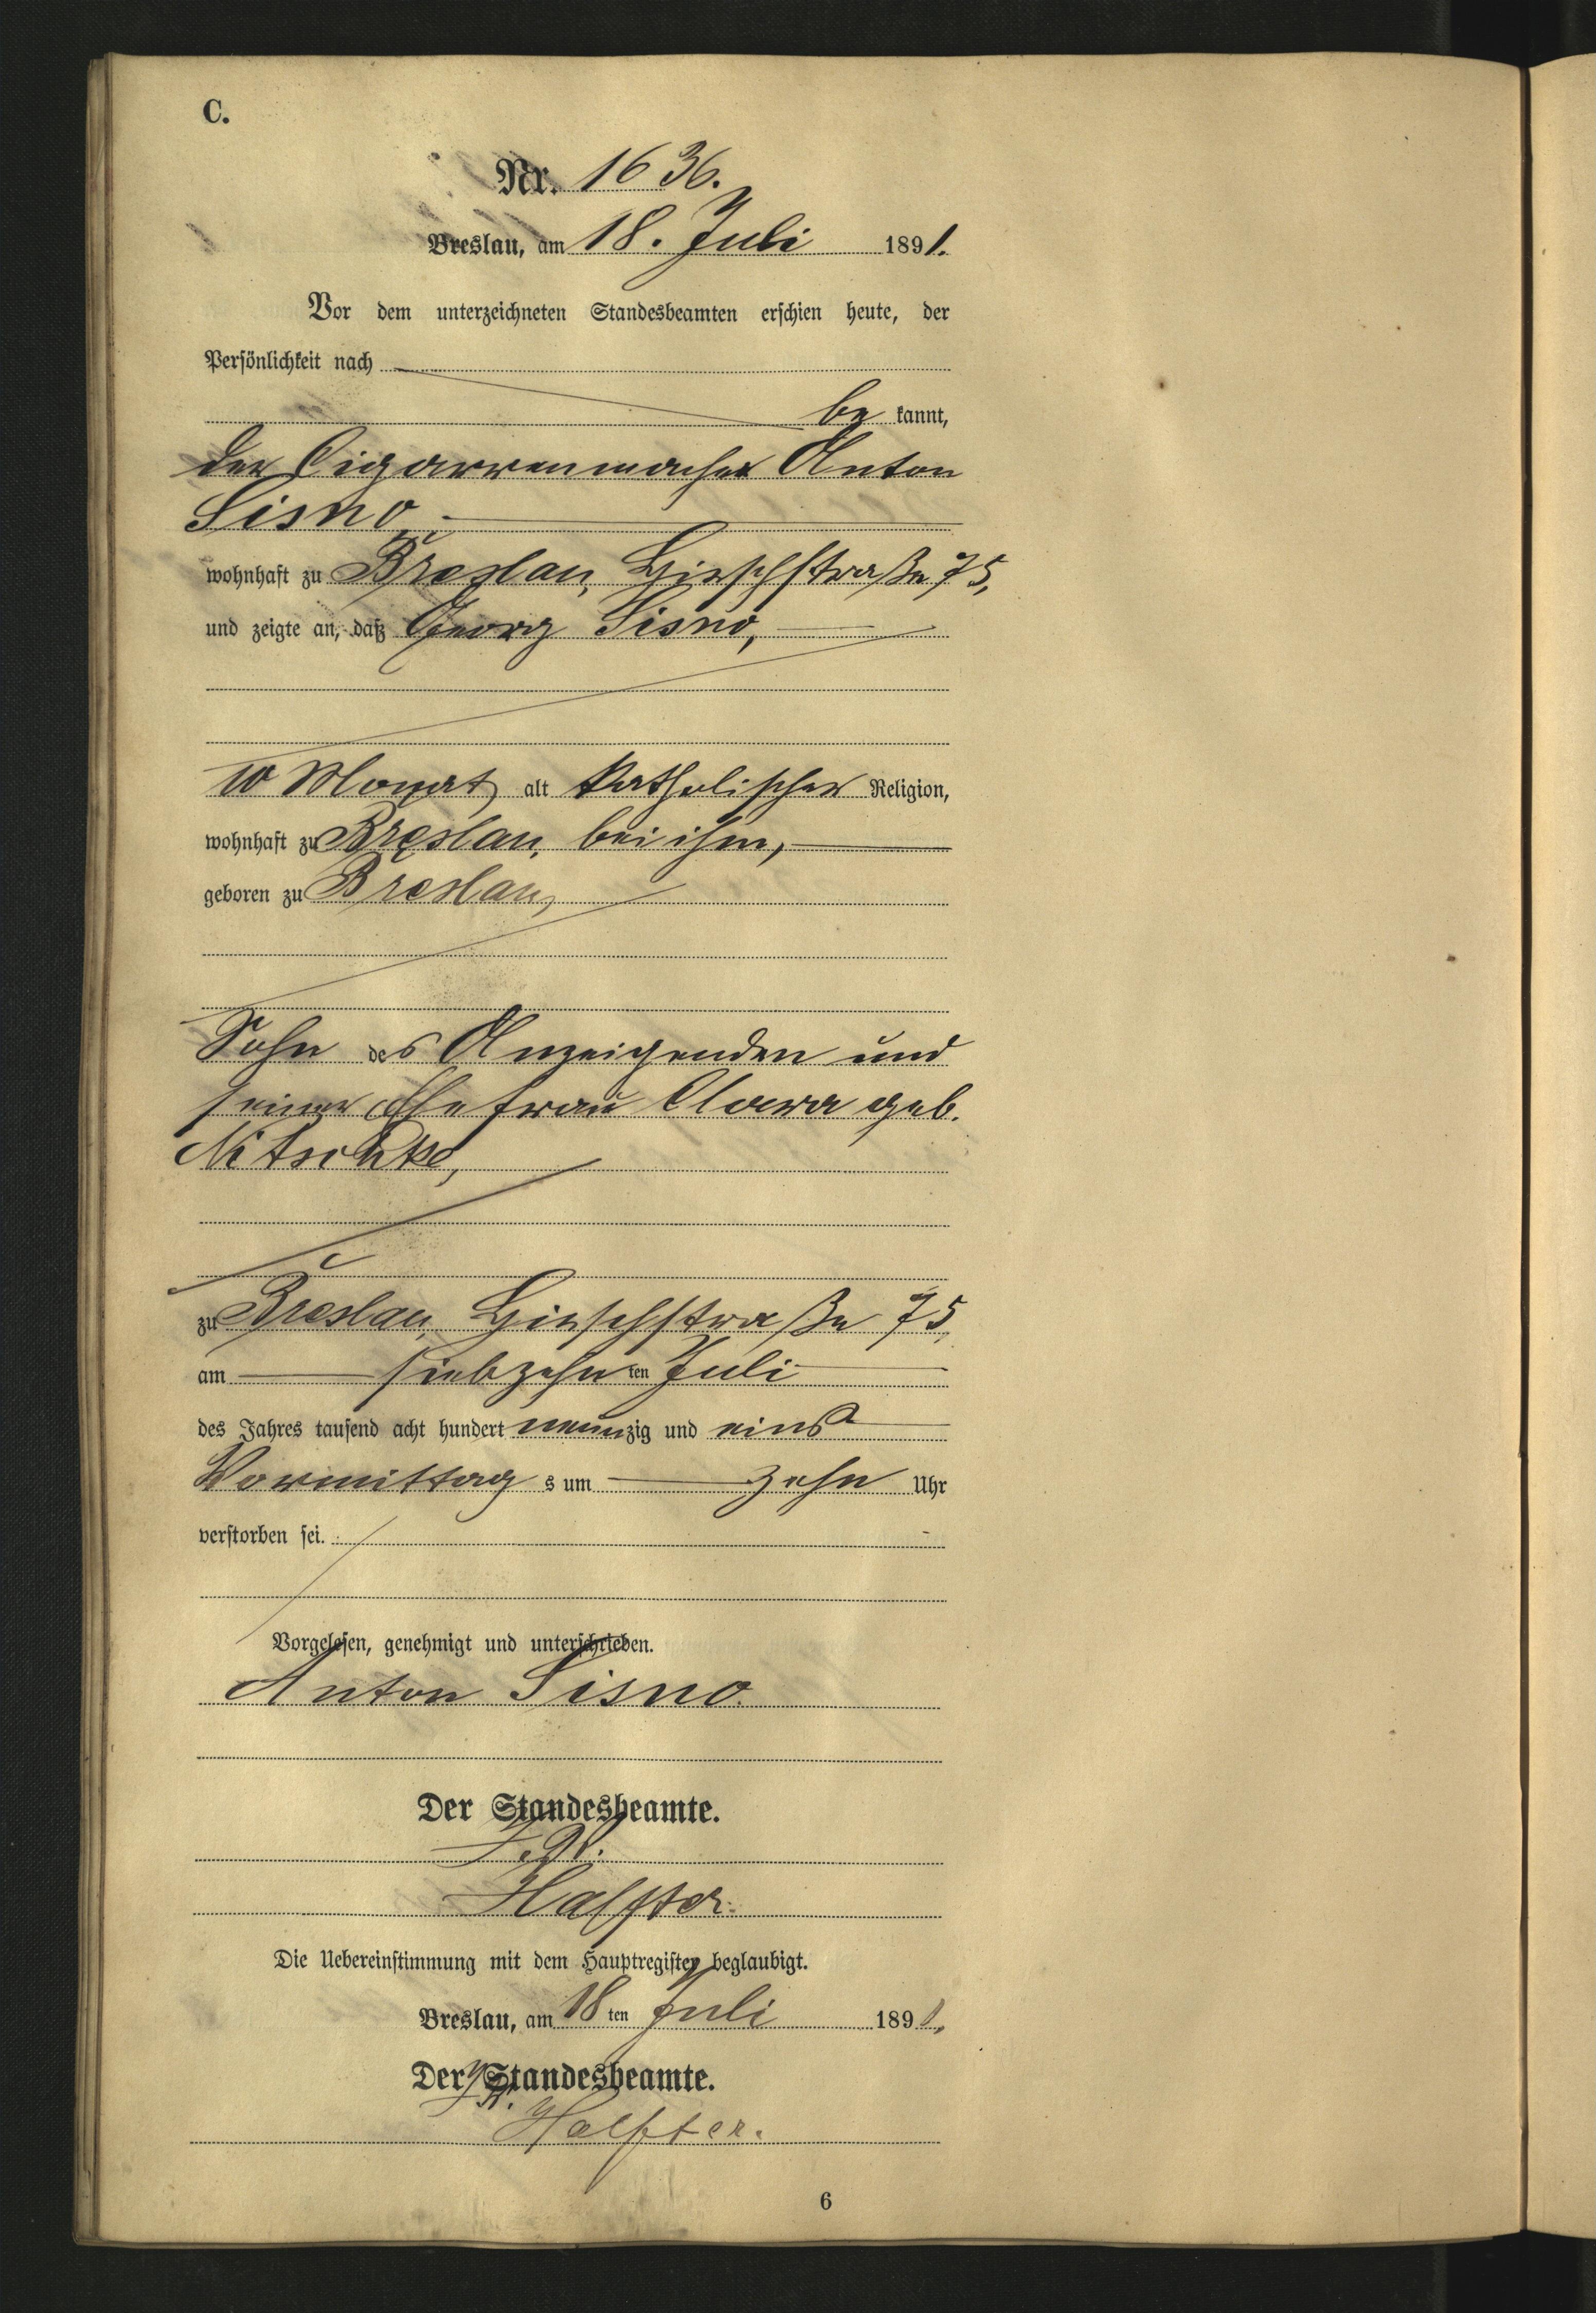 C.
Nr. 1636.
Breslau, am 18. Juli 1891.
Vor dem unterzeichneten Standesbeamten erschien heute, der
Persönlichkeit nach
be kannt,
der Cigarrenmacher Anton
Sisno,
wohnhaft zu Breslau, Hirschstraße 75,
und zeigte an, daß Georg Sisno,
10 Monat alt katholischer Religion,
wohnhaft zu Breslau, bei ihm,
geboren zu Breslau,
Sohn des Anzeigenden und
seiner Ehefrau Clara geb.
Nitschke,
zu Breslau, Hirschstraße 75,
am siebzehn ten Juli
des Jahres tausend acht hundert neunzig und eins
Vormittag s um zehn Uhr
verstorben sei.
Vorgelesen, genehmigt und unterschrieben.
Anton Sisno.
Der Standesbeamte.
Halfter.
Die Uebereinstimmung mit dem Hauptregister beglaubigt.
Breslau, am 18 ten Juli 1891.
Der Standesbeamte.
Halfter.
6